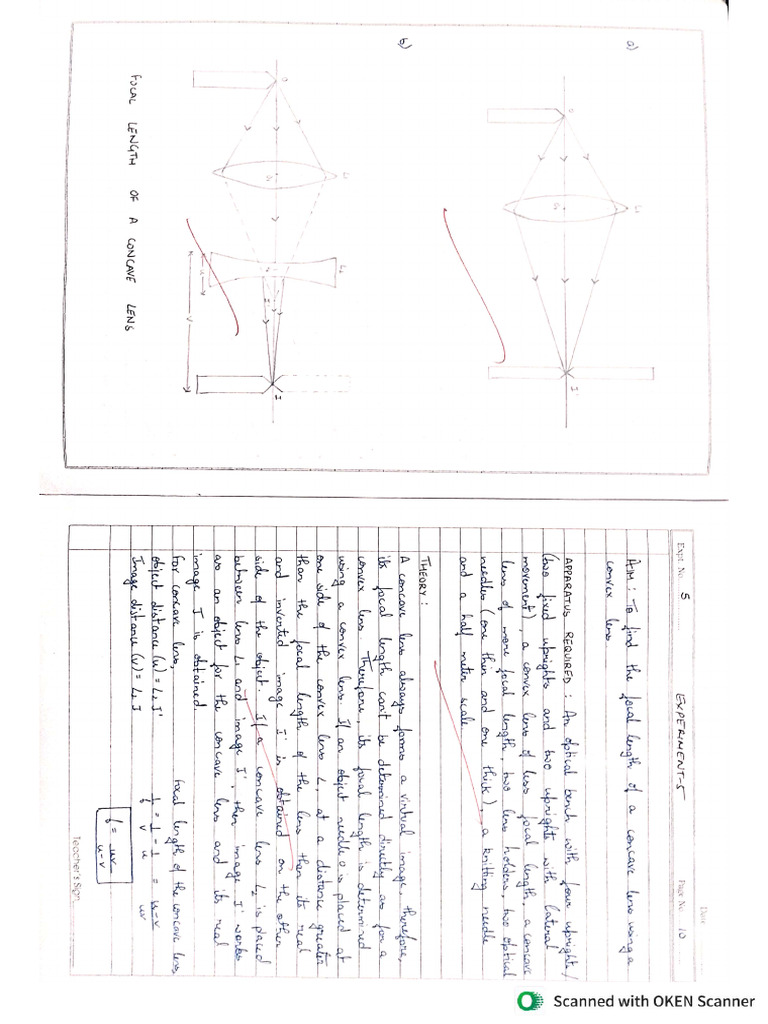 a)
O
L₁
O₁
I'
b)
O
L₁
O₁
L₂
I'
I
u
v
FOCAL LENGTH OF A CONCAVE LENS
Date
Expt. No. 5 EXPERIMENT-5 Page No. 10
AIM : To find the focal length of a concave lens using a
convex lens
APPARATUS REQUIRED : An optical bench with four uprights/
(two fixed uprights and two uprights with lateral
movement), a convex lens of less focal length, a concave
lens of more focal length, two lens holders, two optical
needles (one thin and one thick), a knitting needle
and a half meter scale
THEORY :
A concave lens always forms a virtual image, therefore,
its focal length can't be determined directly as for a
convex lens. Therefore, its focal length is determined
using a convex lens. If an object needle O is placed at
one side of the convex lens L₁ at a distance greater
than the focal length of the lens then its real
and inverted image I' is obtained on the other
side of the object. If a concave lens L₂ is placed
between lens L₁ and image I', then image I' works
as an object for the concave lens and its real
image I is obtained
For concave lens, Focal length of the concave lens,
object distance (u) = L₂ I' 1/f = 1/v - 1/u = u-v/uv
Image distance (v) = L₂ I
f = uv/u-v
Teacher's Sign
Scanned with OKEN Scanner